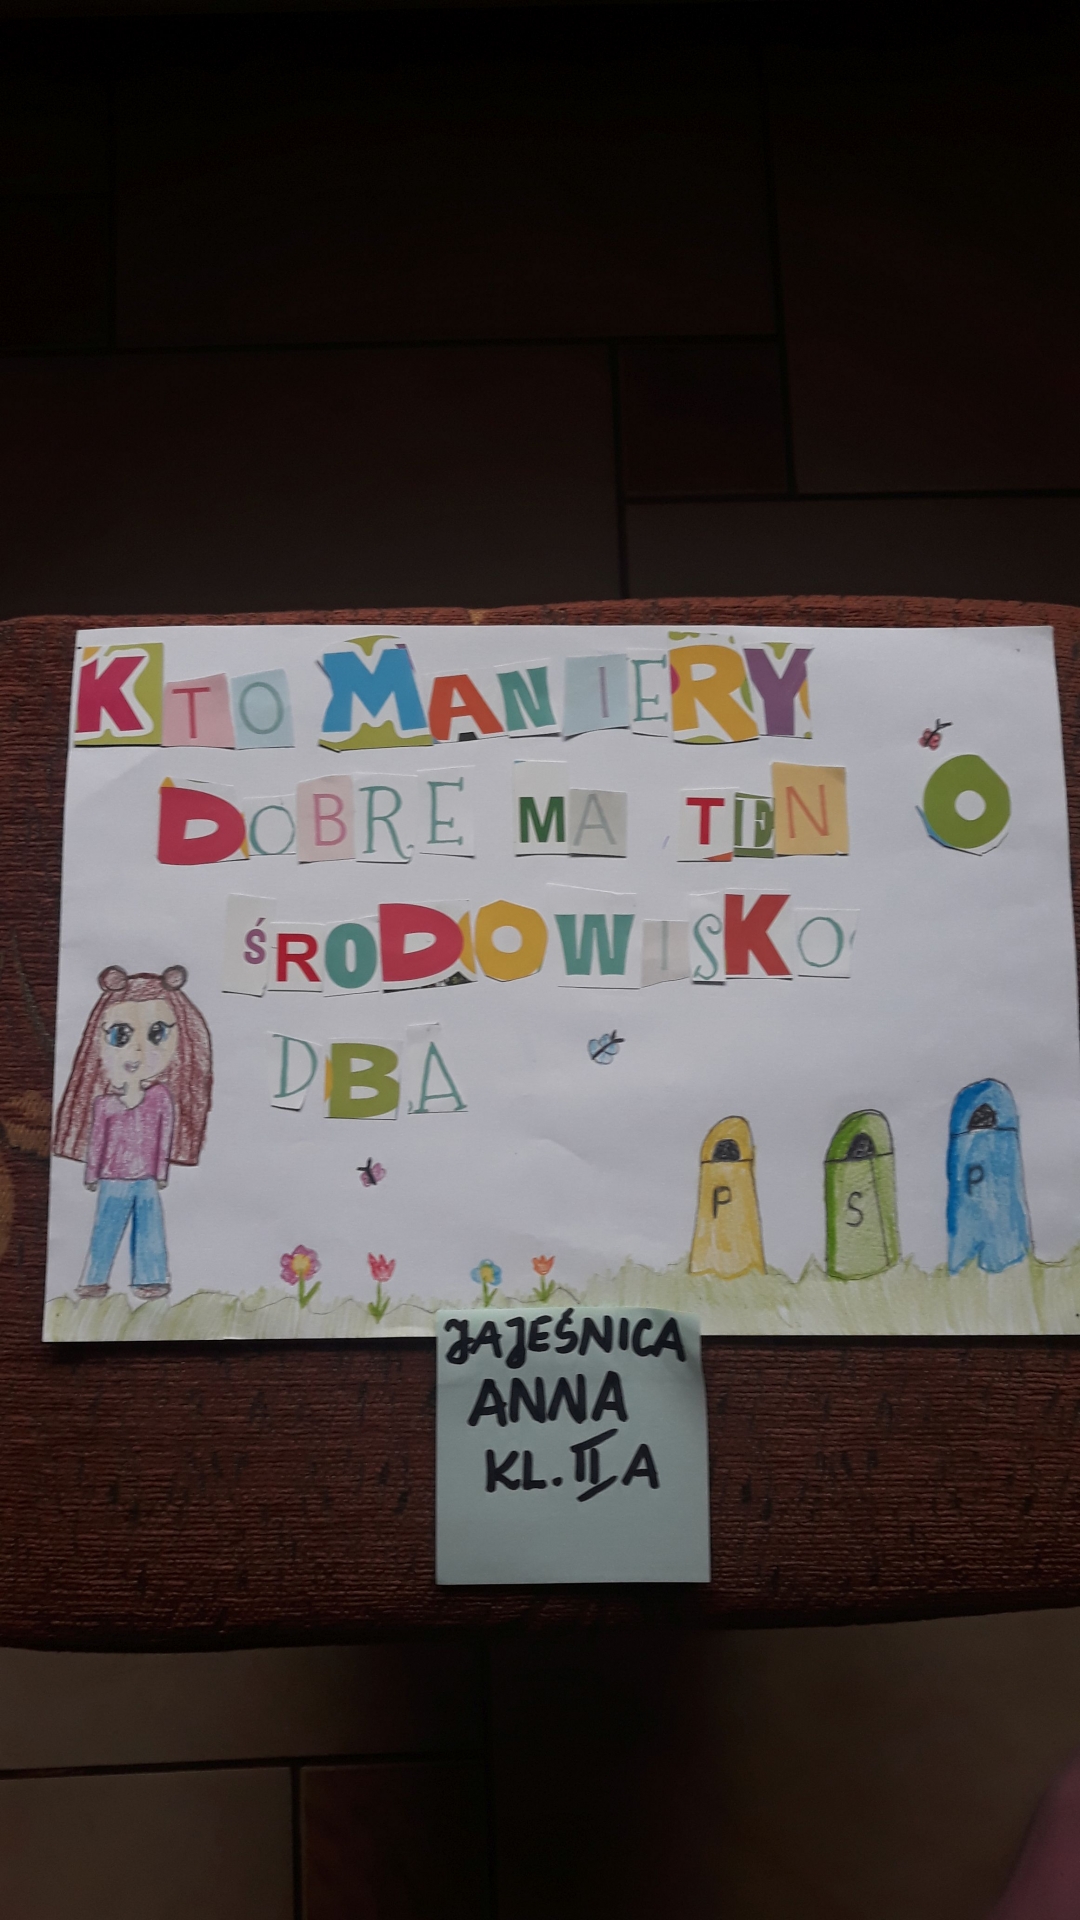 KTO MANIERY
DOBRE MA TEN O
ŚRODOWISKO
DBA
P S P
JAJEŚNICA
ANNA
KL. II A